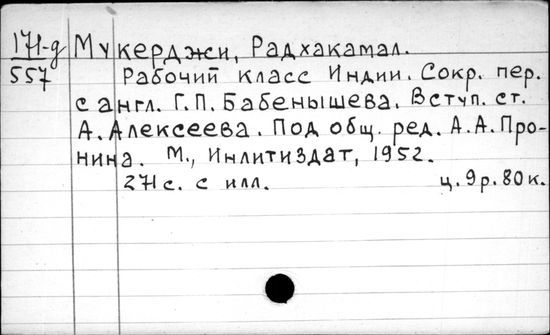 171-д Мукерджи, Радхакамал.
557 Рабочий класс Индии. Сокр. пер.
с англ. Г.П. Бабенышева. Вступ. ст.
А. Алексеева. Под общ. ред. А.А. Про-
нина. М., Инлитиздат, 1952.
271 с. с илл. ц. 9 р. 80 к.